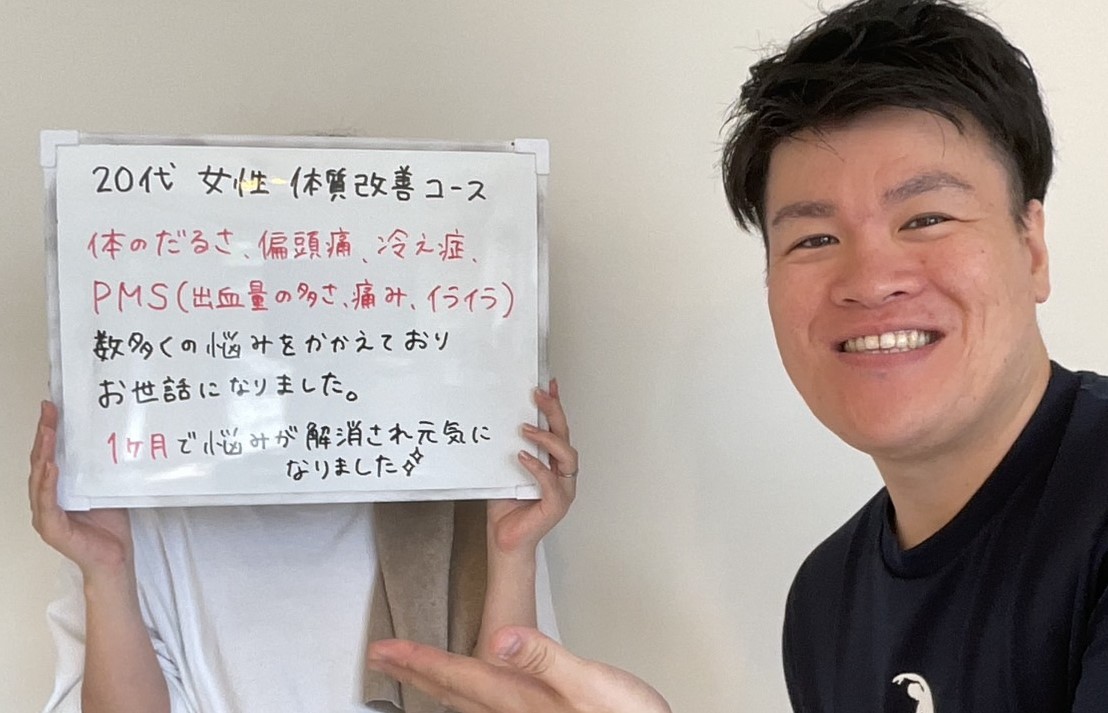 20代 女性 体質改善コース
体のだるさ、偏頭痛、冷え症、
PMS(出血量の多さ、痛み、イライラ)
数多くの悩みをかかえており
お世話になりました。
1ヶ月で悩みが解消され元気に
なりました